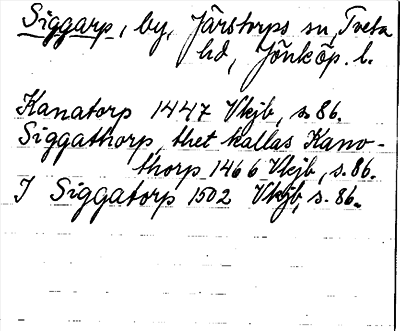 Siggarp, by, Järstorps sn, Tveta
hd, Jönköp. l.
Kanatorp 1447 Vkjb, s. 86.
Siggathorp, thet kallas Kano-
thorp 1466 Vkjb, s. 86.
I Siggatorp 1502 Vkjb, s. 86.